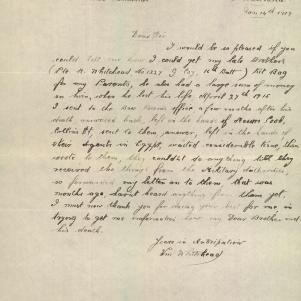 Jan 14th 1917
Dear Sir
I would be so pleased if you
could tell me how I could get my late Brothers
(Pte R. Whitehead No 1327 J Coy, 16th Batt) Kit Bag
for my Parents, he also had a large sum of money
on him, when he lost his life April 27th 1915
I sent to the Base office a few months after his
death answered back, left in the hands of Cook,
Collins St, sent to them answer, left in the hands of
their Agents in Egypt, waited considerable time, then
wrote to them, they couldn't do anything till they
received the things from the Military Authorities,
so forwarded my letter on to them that was
months ago haven't heard anything from them yet,
I must now thank you for doing your best for me in
trying to get me information how my Dear Brother met
his death.
Yours in Anticipation
Whitehead